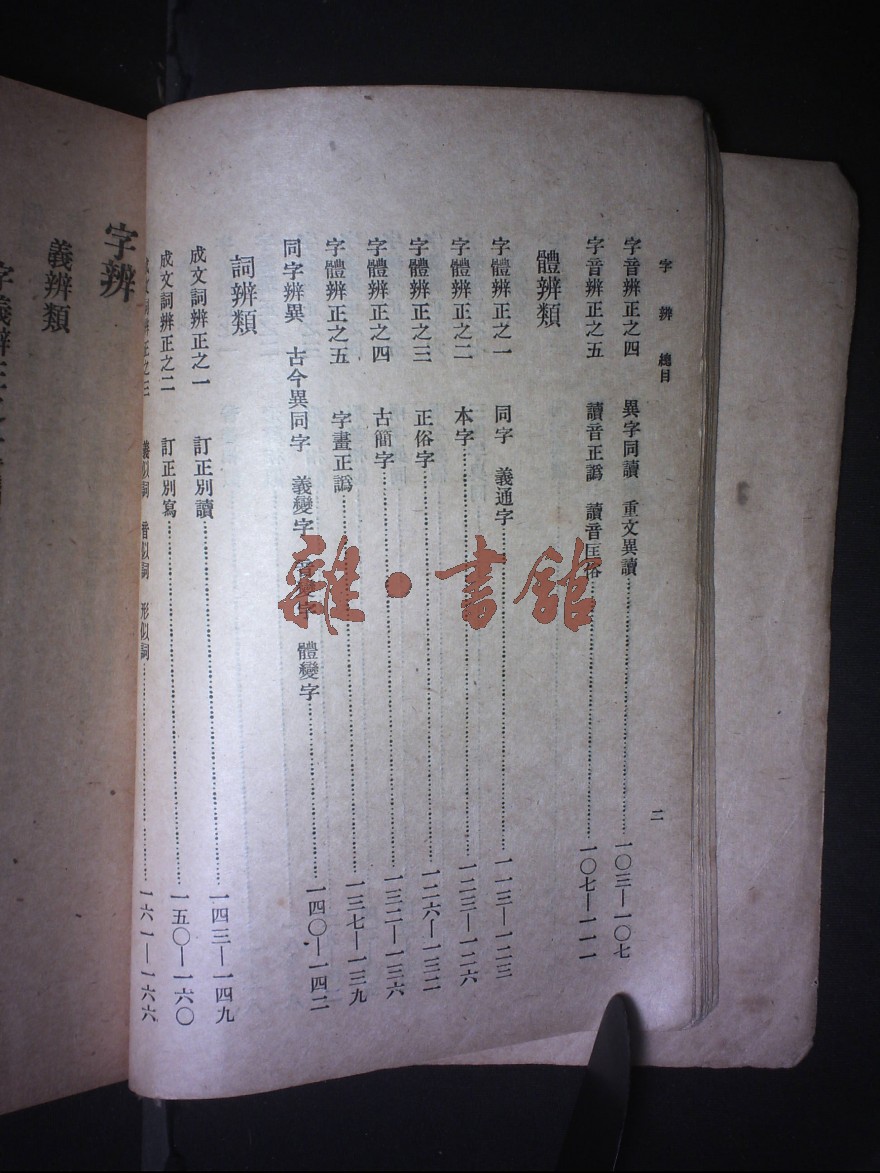 字辨 總目
二
字音辨正之四 異字同讀 重文異讀……一〇三—一〇七
字音辨正之五 讀音正譌 讀音匡俗……一〇七—一一一
體辨類
字體辨正之一 同字 義通字……一一三—一二三
字體辨正之二 本字……一二三—一二六
字體辨正之三 正俗字……一二六—一三二
字體辨正之四 古簡字……一三二—一三六
字體辨正之五 字畫正譌……一三七—一三九
同字辨異 古今異同字 義變字 音變字 體變字……一四〇—一四二
詞辨類
成文詞辨正之一 訂正別讀……一四三—一四九
成文詞辨正之二 訂正別寫……一五〇—一六〇
成文詞辨正之三 義似詞 音似詞 形似詞……一六一—一六六
字辨
義辨類
雜·書館